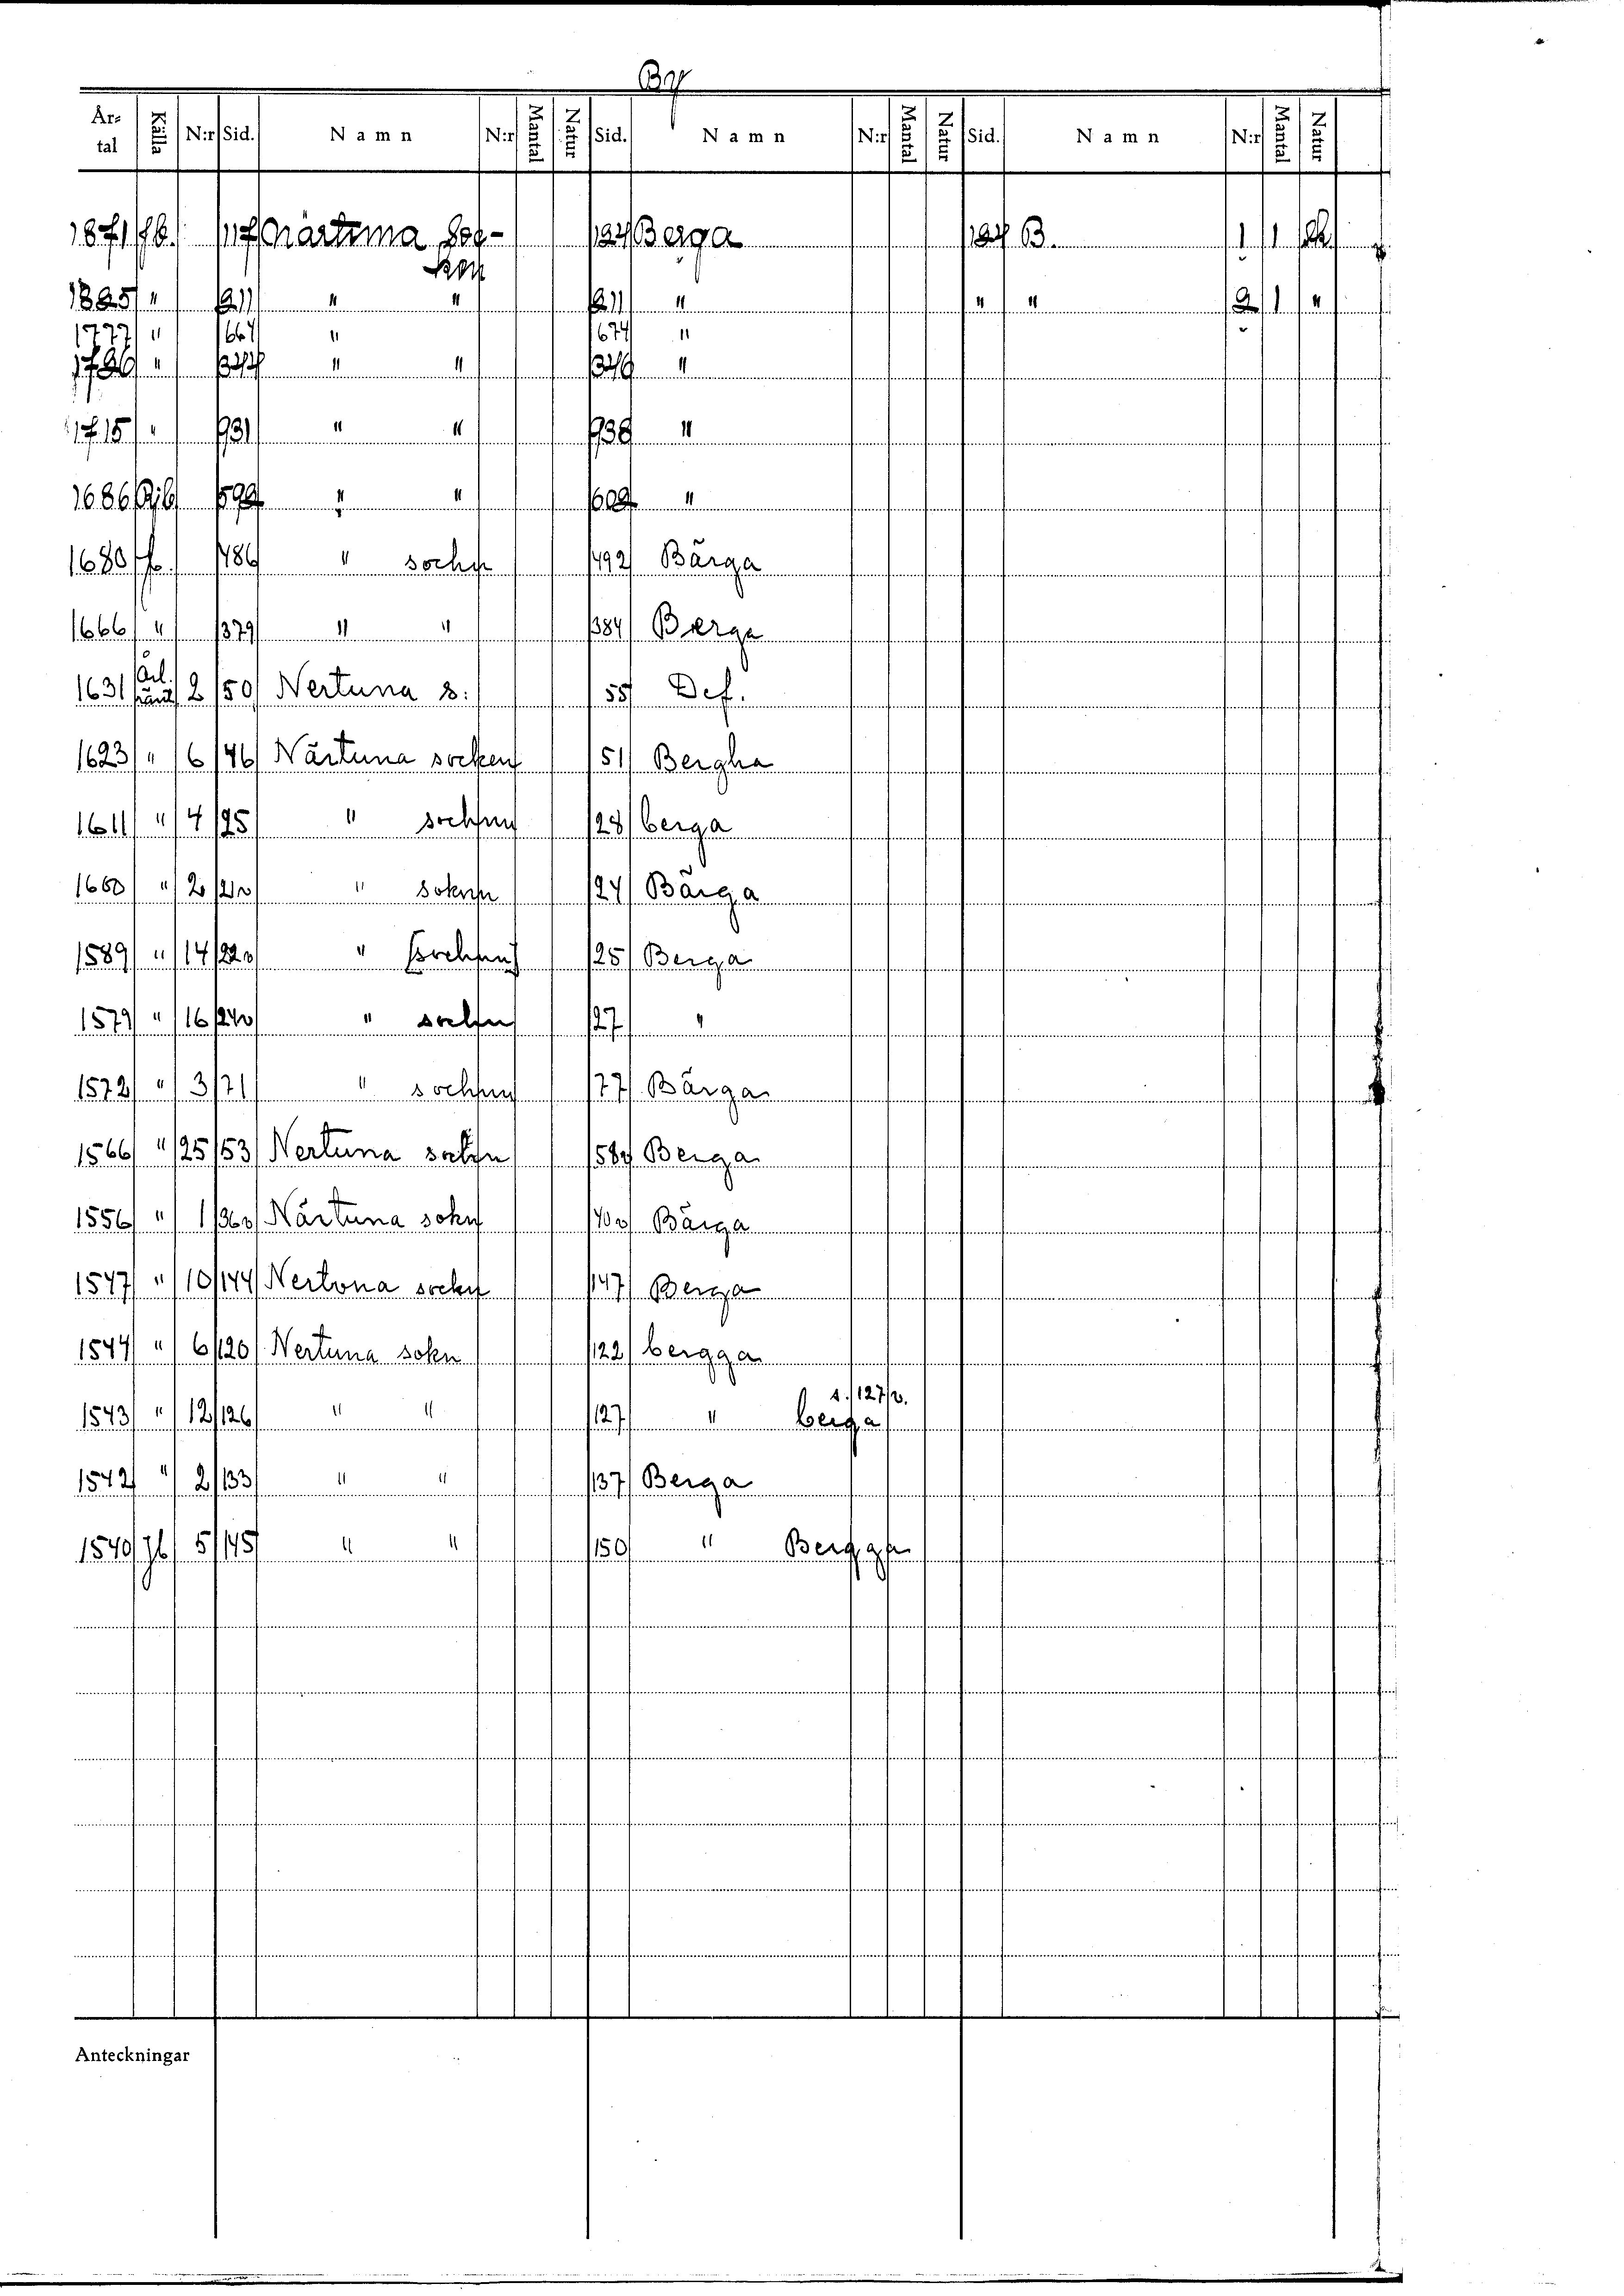 By
År-tal Källa N:r Sid. Namn N:r Mantal Natur Sid. Namn N:r Mantal Natur Sid. Namn N:r Mantal Natur
1871 Jb. 117 Närtuna Soc- 124 Berga 124 B. 1 1 sk
ken
1825 " 211 " " 211 " " " 2 1 "
1777 " 664 " 674 "
1726 " 344 " " 346 "
1715 " 931 " " 938 "
1686 Rjb 592 " " 602 "
1680 Jb. 486 " sochn 492 Bärga
1666 " 379 " " 384 Berga
1631 Årl. ränt 2 50 Nertuna s: 55 Def.
1623 " 6 46 Närtuna socken 51 Bergha
1611 " 4 25 " sochnn 28 berga
1600 " 2 21v " soknn 24 Bärga
1589 " 14 22v " [sochnn] 25 Berga
1579 " 16 24v " sochn 27 "
1572 " 3 71 " sochnn 77 Bärga
1566 " 25 53 Nertuna sockn 58v Berga
1556 " 1 36v Närtuna sokn 40v Bärga
1547 " 10 144 Nertona sockn 147 Berga
1544 " 6 120 Nertuna sokn 122 bergga
1543 " 12 126 " " 127 " berga s. 127 v.
1542 " 2 133 " " 137 Berga
1540 Jb 5 145 " " 150 " Bergga
Anteckningar